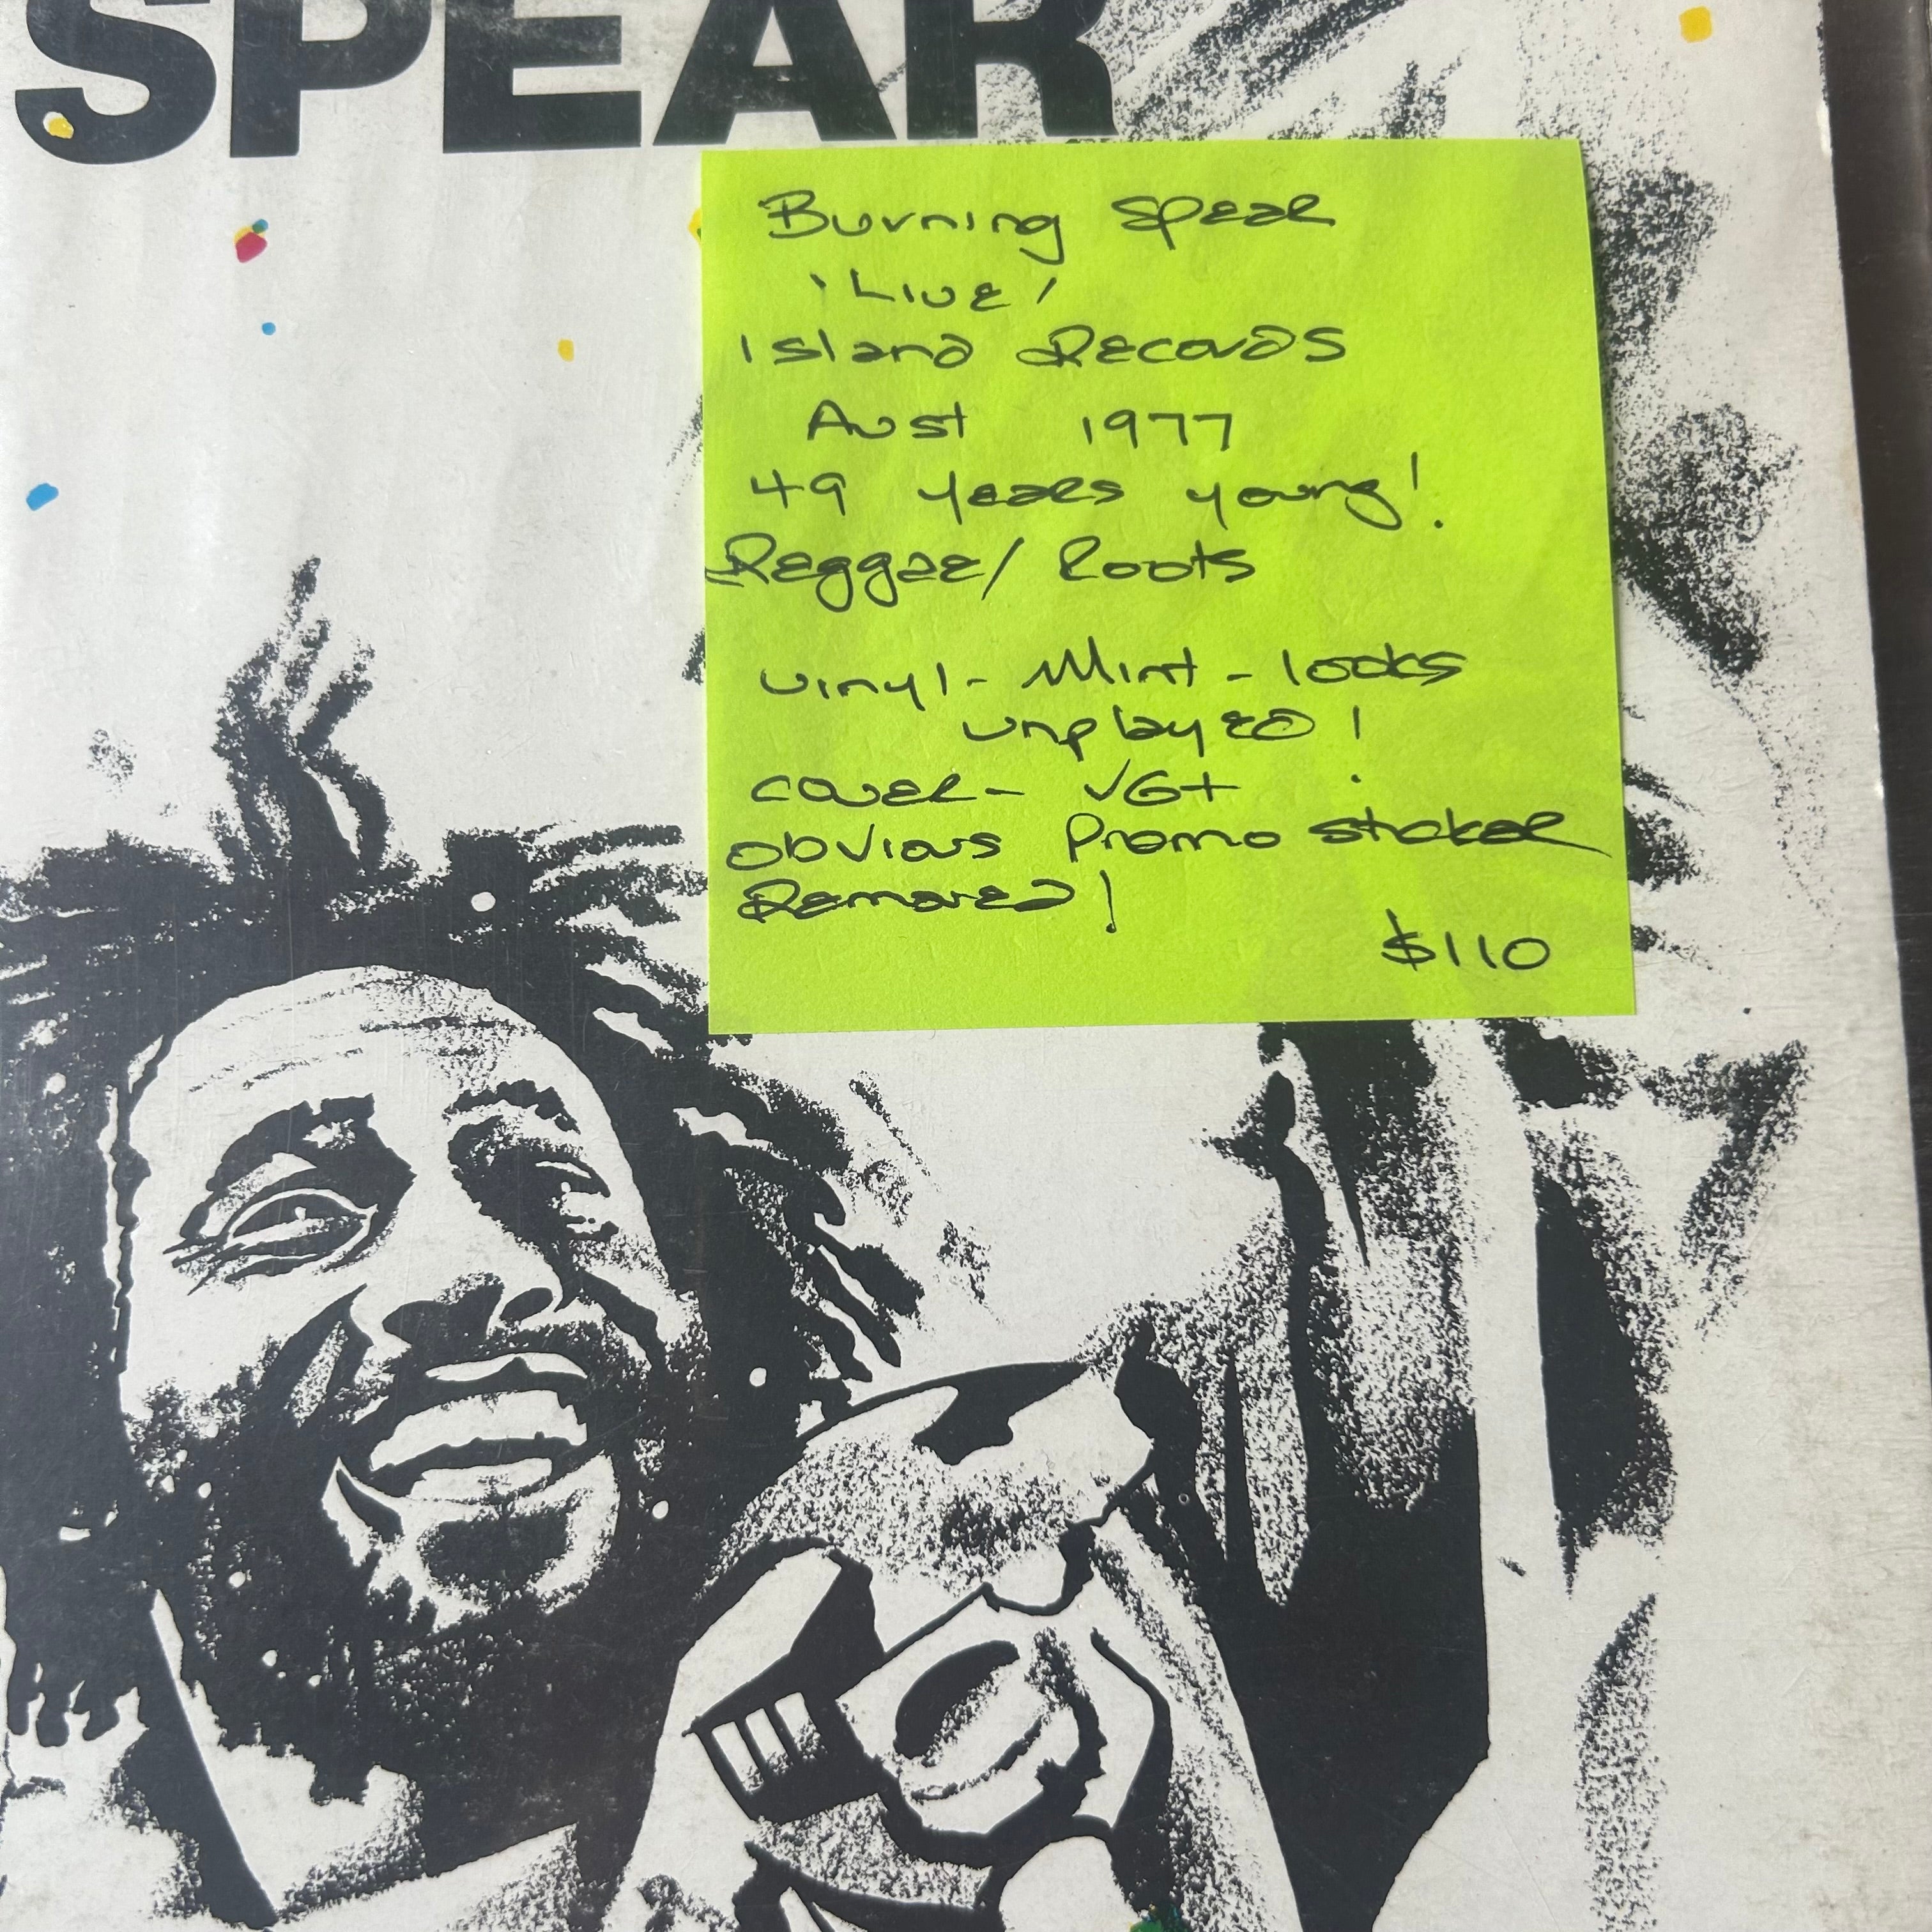 SPEAR
Burning Spear
'Live'
Island Records
Aust 1977
49 years young!
Reggae/ Roots
Vinyl - Mint - looks
unplayed!
cover - VG+
obvious Promo sticker
Removed!
$110